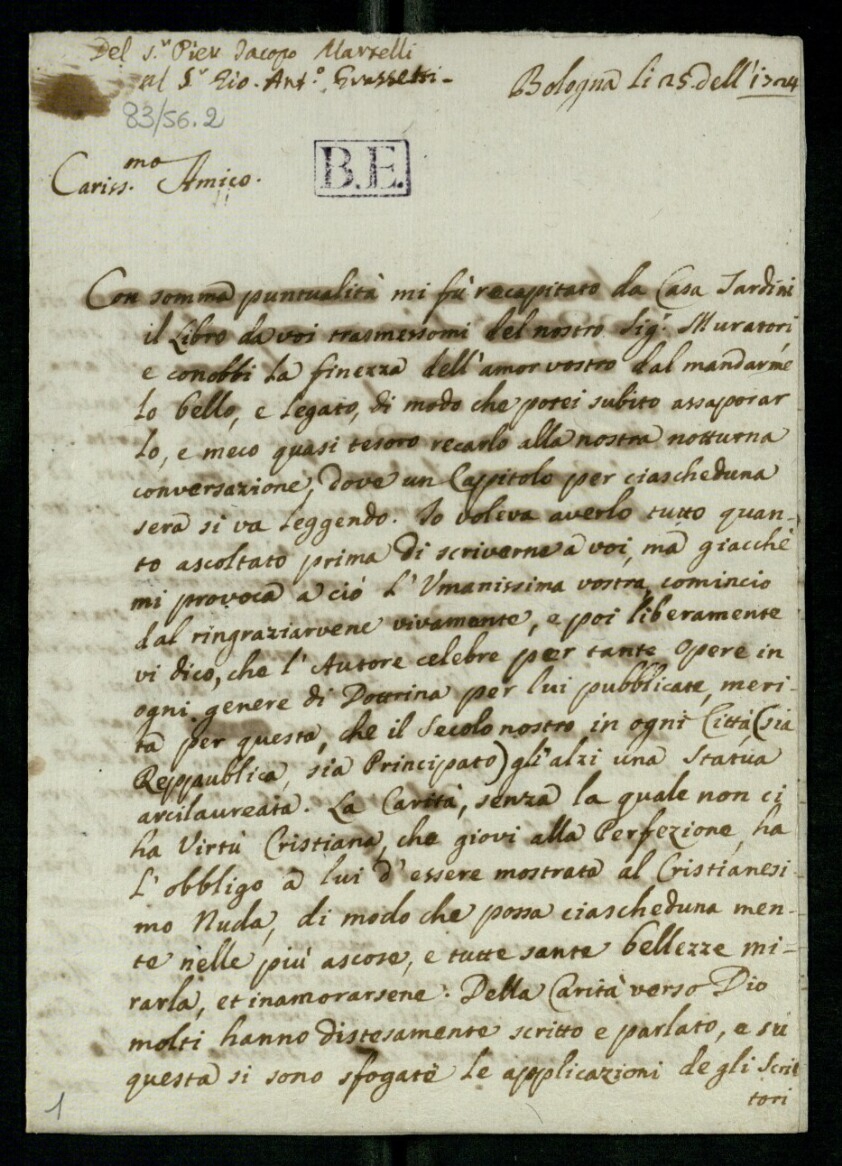 Del S.r Pier Jacopo Martelli
al S.r Gio. Ant.o Grassetti
Bologna li 25. dell' 1724
83/56.2
Cariss.mo Amico.
B.E.
Con somma puntualità mi fù recapitato da Casa Sardini
il Libro da voi trasmessomi del nostro Sig.r Muratori
e conobbi la finezza dell'amor vostro dal mandarme
lo bello, e legato, di modo che potei subito assaporar
lo, e meco quasi tesoro recarlo alla nostra notturna
conversazione, dove un Capitolo per ciascheduna
sera si va leggendo. Io voleva averlo tutto quan-
to ascoltato prima di scriverne à voi, mà giacchè
mi provoca a ciò l'Umanissima vostra, comincio
dal ringraziarvene vivamente, e poi liberamente
vi dico, che l'Autore celebre per tante Opere in
ogni genere di Dottrina per lui pubblicate, meri-
ta per questa, che il Secolo nostro in ogni Città (sia
Reppublica, sia Principato) gli alzi una Statua
arcilaureata. La Carità, senza la quale non ci
ha Virtù Cristiana, che giovi alla Perfezione, ha
l'obbligo à lui d'essere mostrata al Cristianesi-
mo Nuda, di modo che possa ciascheduna men-
te nelle più ascose, e tutte sante bellezze mi-
rarla, et inamorarsene. Della Carità verso Dio
molti hanno distesamente scritto e parlato, e sù
questa si sono sfogate le applicazioni degli Scrit
tori
1